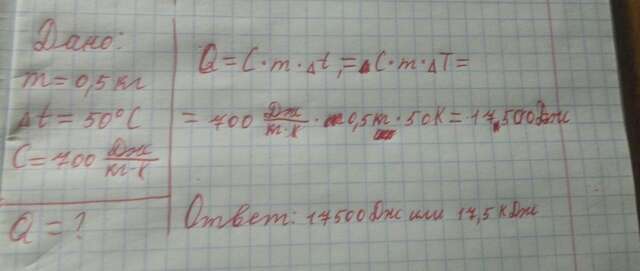 Дано:
m = 0,5 кг
Δt = 50°C
C = 700 Дж/кг·К
Q = ?
Q = C · m · Δt, = C · m · ΔT =
= 700 Дж/кг·К · 0,5кг · 50К = 17500Дж
Ответ: 17500Дж или 17,5 кДж